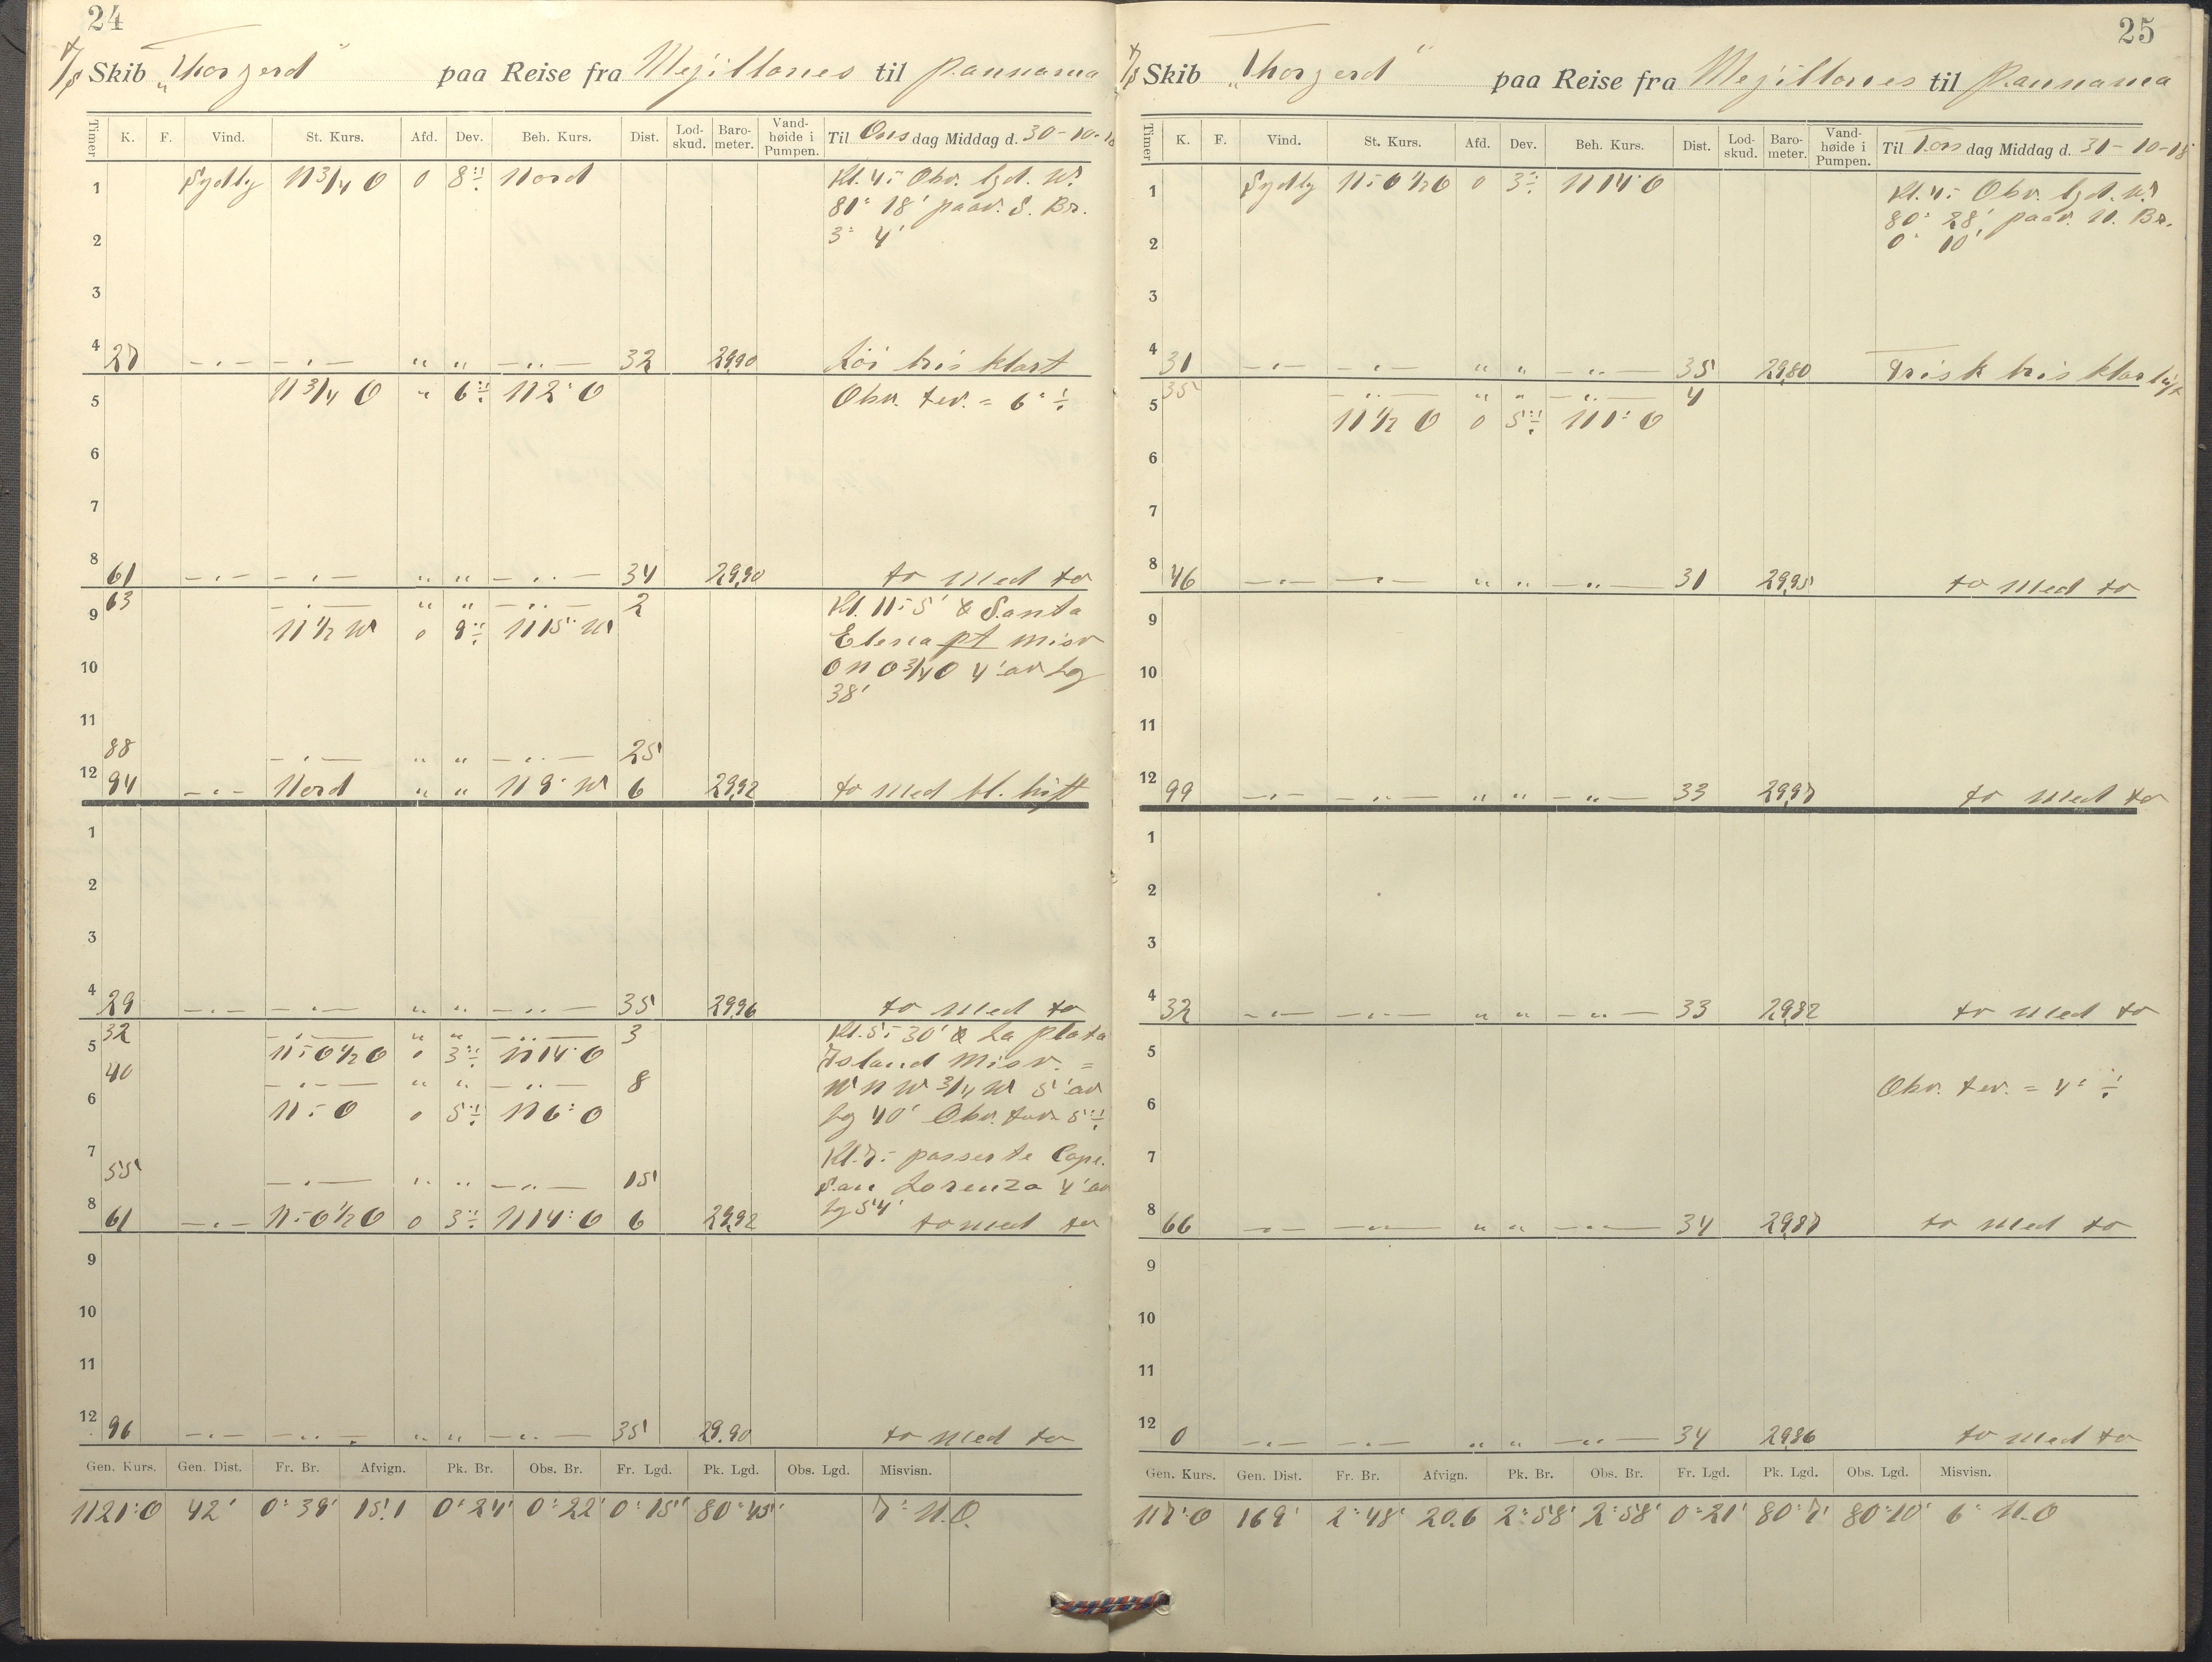 24
S/S Skib „Thorgerd" paa Reise fra Mejillones til Pannama
Timer K. F. Vind. St. Kurs. Afd. Dev. Beh. Kurs. Dist. Lod-skud. Baro-meter. Vand-høide i Pumpen. Til Onsdag Middag d. 30-10-18
1 Sydly N 3/4 O 0 8° ÷ Nord Kl. 4:- Obv. lgd. W.
81° 18' paav. S. Br.
2 3° 4'
3
4 27 -"- -"- " " -"- 32 29.90 Løi bris klart
5 N 3/4 O " 6° ÷ N 2° O Obv. tev. = 6° ÷
6
7
8 61 -"- -"- " " -"- 34 29.90 to med to
63 -"- " " -"- 2 Kl. 11:5' & Santa
9 N 1/2 W 0 9° ÷ N 15° W Elena pt misv
10 ONO 3/4 O 4' av Lg
38'
11
88 -"- " " -"- 25
12 94 -"- Nord " " N 9° W 6 29.92 to med bl. luft
1
2
3
4 29 -"- -"- " " -"- 35 29.96 to med to
32 -"- " " -"- 3 Kl. 5:30' & La plata
5 N-O 1/2 O 0 3° ÷ N 14° O Island Misv. =
40 -"- " " -"- 8 WNW 3/4 W 5' av
6 N-O 0 5° ÷ N 6° O Lg 40' Obv. tev. 5° ÷
7 Kl. 7:- passerte Cape.
55 -"- " " -"- 15 San Lorenza 4' av
Lg 54'
8 61 -"- N-O 1/2 O 0 3° ÷ N 14° O 6 29.92 to med to
9
10
11
12 96 -"- -"- " " -"- 35 29.90 to med to
Gen. Kurs. Gen. Dist. Fr. Br. Afvign. Pk. Br. Obs. Br. Fr. Lgd. Pk. Lgd. Obs. Lgd. Misvisn.
N 21° O 42' 0° 39' 15.1 0° 24' 0° 22' 0° 15' 80° 45' 7° N.O.
25
S/S Skib „Thorgerd" paa Reise fra Mejillones til Pannama
Timer K. F. Vind. St. Kurs. Afd. Dev. Beh. Kurs. Dist. Lod-skud. Baro-meter. Vand-høide i Pumpen. Til Torsdag Middag d. 31-10-18
1 Sydly N-O 1/2 O 0 3° ÷ N 14° O Kl. 4:- Obv. lgd. W.
80° 28' paav. N. Br.
2 0° 10'
3
4 31 -"- -"- " " -"- 35 29.80 Frisk bris klar luft
35 -"- " " -"- 4
5 N 1/2 O 0 5° ÷ N 1° O
6
7
8 46 -"- -"- " " -"- 31 29.95 to med to
9
10
11
12 99 -"- -"- " " -"- 33 29.97 to med to
1
2
3
4 32 -"- -"- " " -"- 33 29.82 to med to
5
6 Obv. tev. = 4° ÷
7
8 66 -"- -"- " " -"- 34 29.87 to med to
9
10
11
12 0 -"- -"- " " -"- 34 29.86 to med to
Gen. Kurs. Gen. Dist. Fr. Br. Afvign. Pk. Br. Obs. Br. Fr. Lgd. Pk. Lgd. Obs. Lgd. Misvisn.
N 7° O 169' 2° 48' 20.6 2° 58' 2° 58' 0° 21' 80° 7' 80° 10' 6° N.O